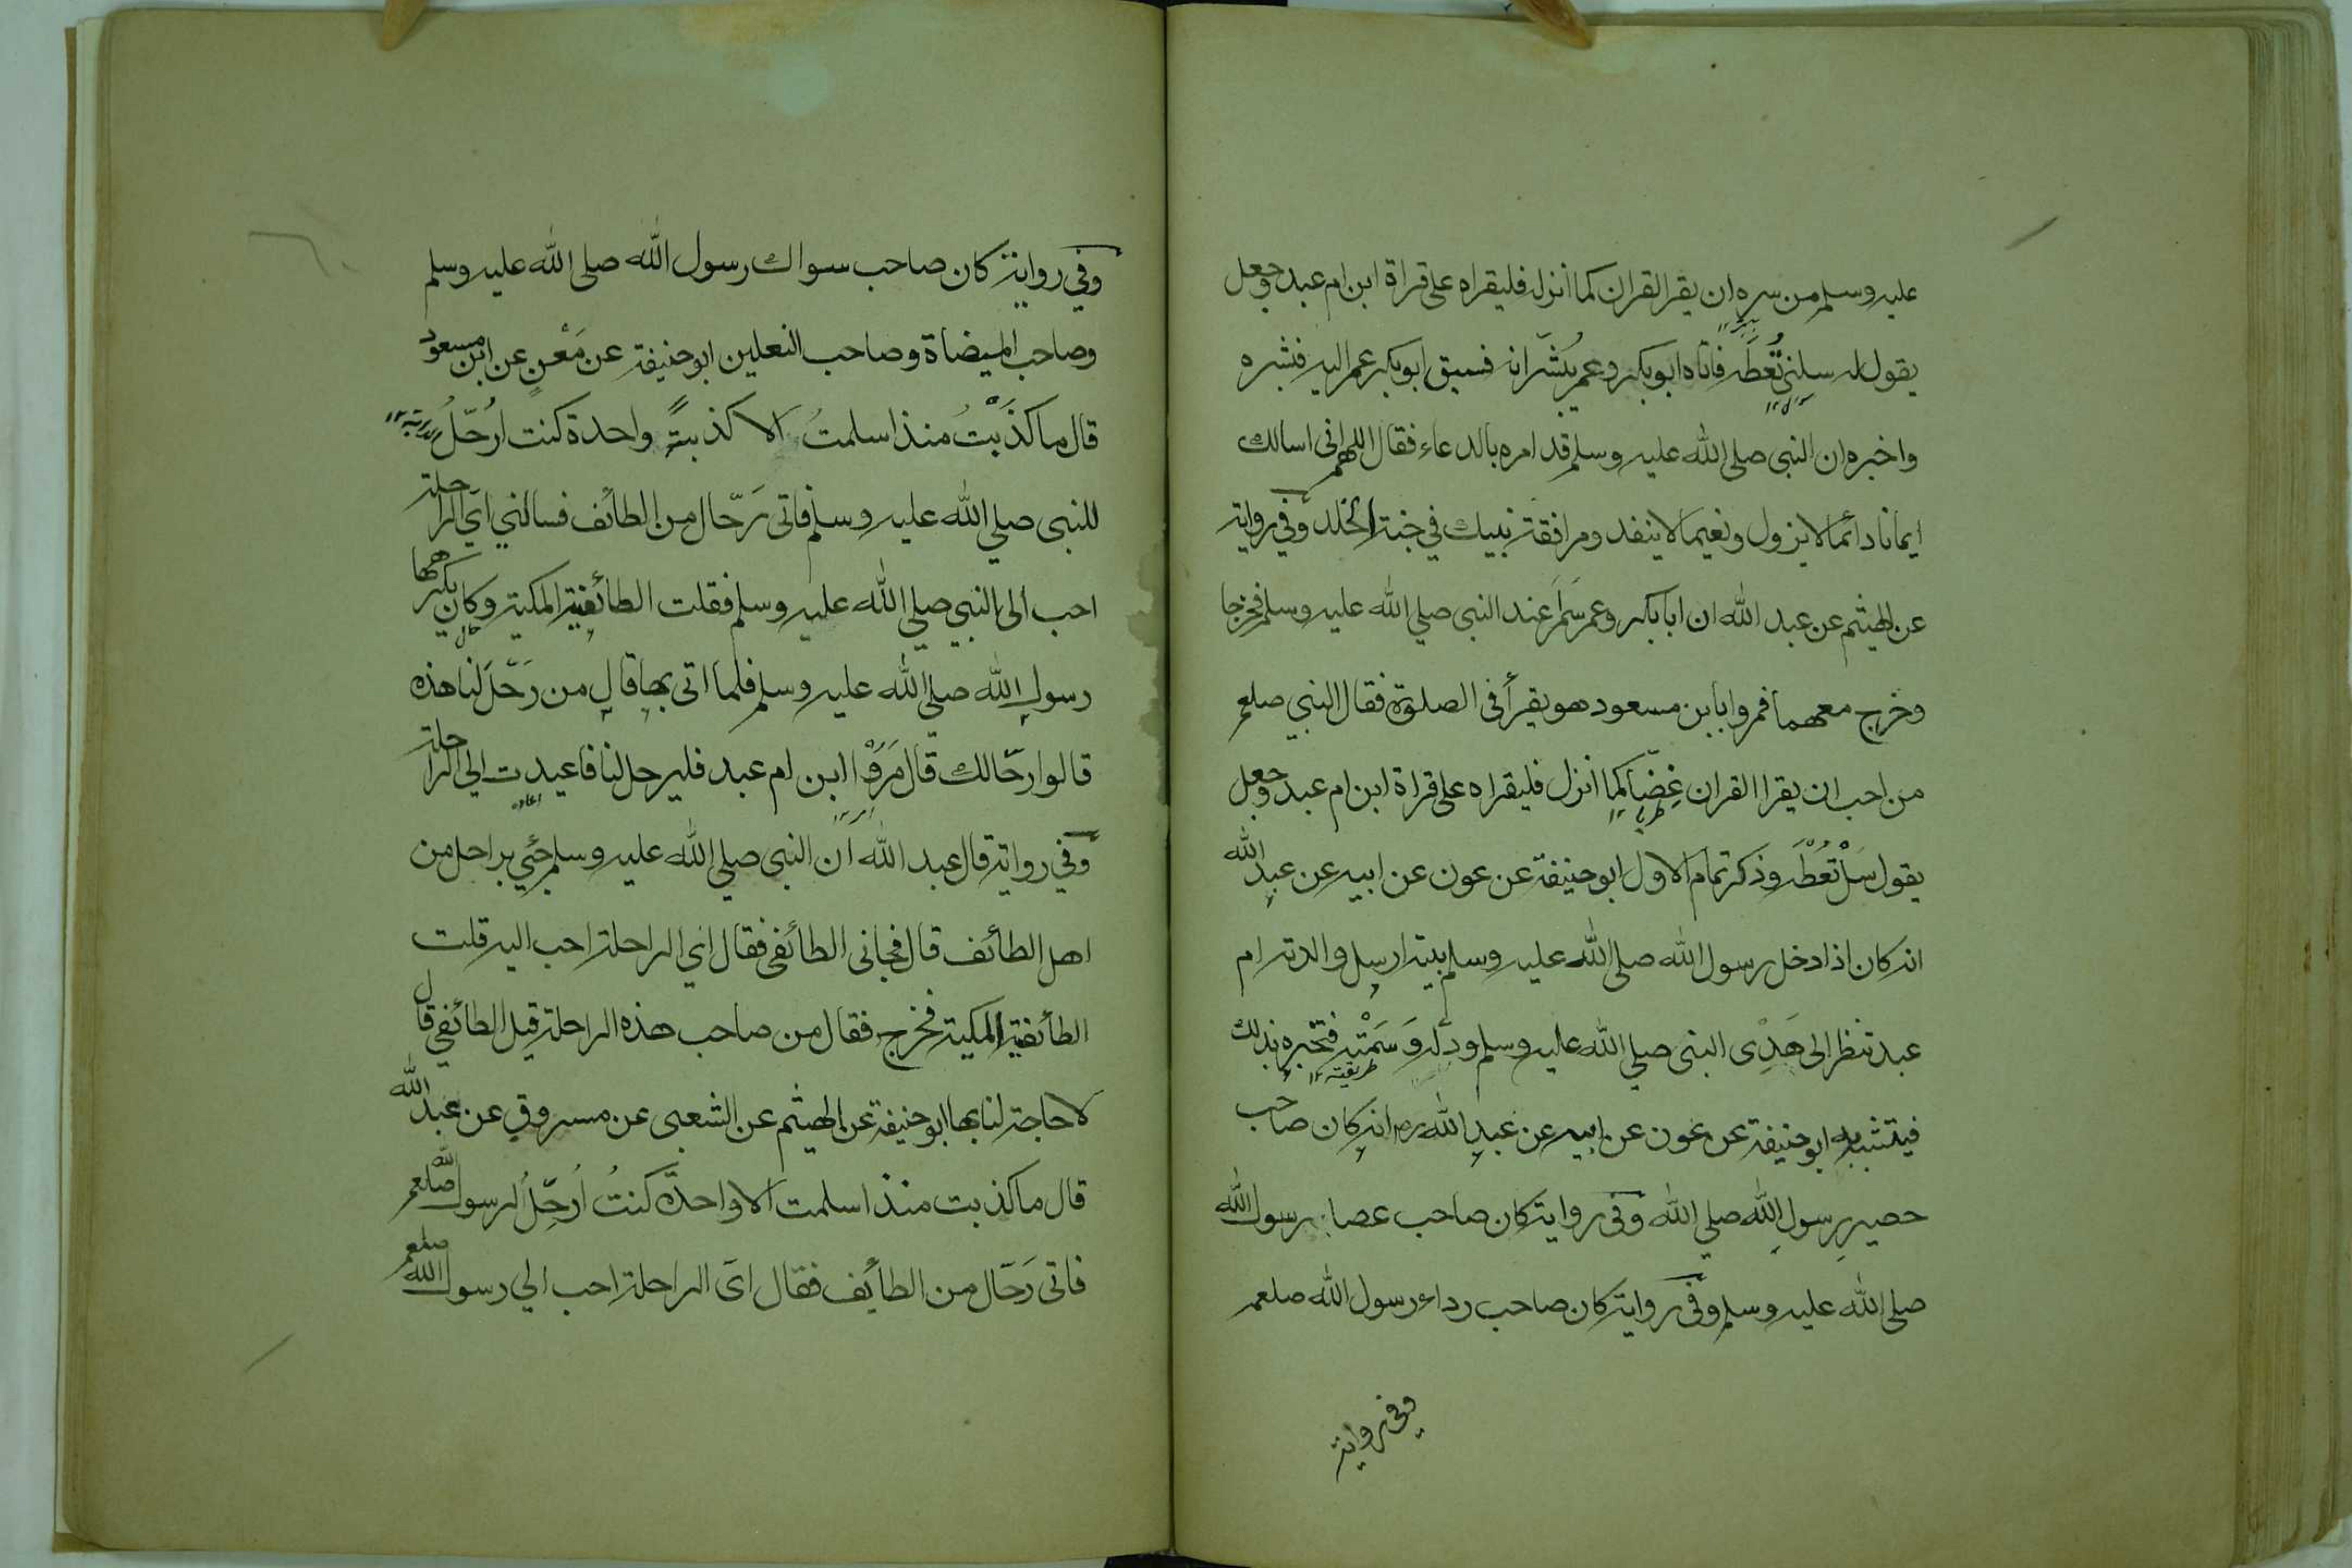 عليه وسلم من سره ان يقر القران كما انزل فليقراه على قراة ابن ام عبد وجعل
يقول له سلني تُعْطَه فاتاه ابو بكر وعمر يبشرانه فسبق ابو بكر عمر اليه فبشره
واخبره ان النبي صلى الله عليه وسلم قد امره بالدعاء فقال اللهم اني اسالك
ايمانا دائما لا يزول ونعيما لا ينفد ومرافقة نبيك في جنة الخلد وفي رواية
عن الهيثم عن عبد الله ان ابا بكر وعمر سَمَرَ عند النبي صلي الله عليه وسلم فخرجا
وخرج معهما فمروا بابن مسعود هو يقرأ في الصلوة فقال النبي صلعم
من احب ان يقرا القران غضّا كما انزل فليقراه على قراة ابن ام عبد وجعل
يقول سَلْ تُعْطَه وذكر تمام الاول ابو حنيفة عن عون عن ابيه عن عبد الله
انه كان اذا دخل رسول الله صلى الله عليه وسلم بيته ارسل والدته ام
عبد تنظر الى هَدْى النبي صلي الله عليه وسلم ودَلّه وَسَمْتِه فتخبره بذلك
طريقته ١٢
فيتشبه به ابو حنيفة عن عون عن ابيه عن عبد الله رض انه كان صاحب
حصير رسول الله صلي الله وفي رواية كان صاحب عصا رسول الله
صلى الله عليه وسلم وفي رواية كان صاحب رداء رسول الله صلعم
وفي رواية
وفي رواية كان صاحب سواك رسول الله صلى الله عليه وسلم
وصاحب الميضاة وصاحب النعلين ابو حنيفة عن مَعْنٍ عن ابن مسعود
قال ما كذَبْتُ منذ اسلمتُ الا كذبةً واحدة كنت ارُحّلُ
للنبي صلي الله عليه وسلم فاتى رَحّال من الطائف فسالني ايّ الراحلة
احب الى النبي صلي الله عليه وسلم فقلت الطائفية المكية وكان يكرهها
رسول الله صلي الله عليه وسلم فلما اتى بها قال من رَحّلَ لنا هذه
قالوا رحّالك قال مَرُوْا ابن ام عبد فليرحل لنا فاعيدت الي الراحلة
وفي رواية قال عبد الله ان النبي صلي الله عليه وسلم جئي براحل من
اهل الطائف قال فجاني الطائفي فقال اي الراحلة احب اليه قلت
الطائفية المكية فخرج فقال من صاحب هذه الراحلة قيل الطائفي قال
لا حاجة لنا بها ابو حنيفة عن الهيثم عن الشعبى عن مسروق عن عبد الله
قال ما كذبت منذ اسلمت الا واحدة كنتُ اُرحِّلُ لرسول الله صلعم
فاتى رَحّال من الطائف فقال ايّ الراحلة احب الي رسول الله صلعم